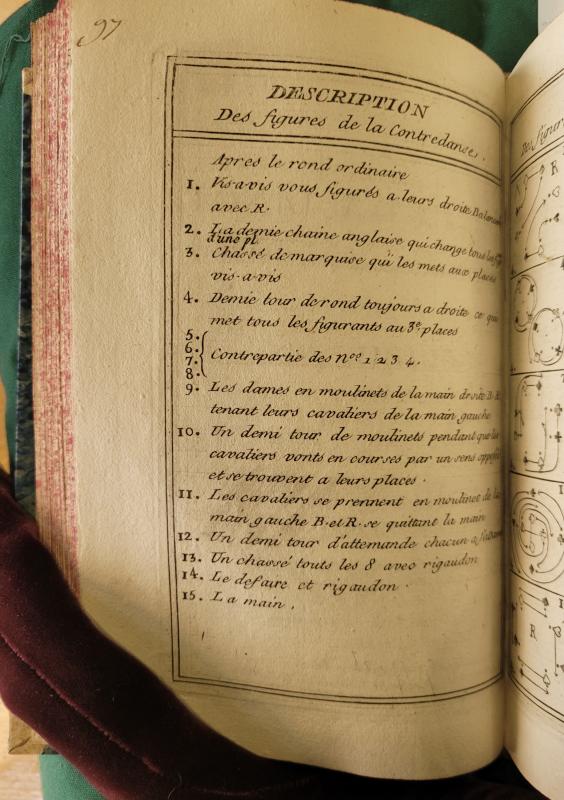 97
DESCRIPTION
Des figures de la Contredanse.
Apres le rond ordinaire
1. Vis-a-vis vous figurés a leurs droite
avec R.
2. La demie chaine anglaise qui change tous
d'une pl.
3. Chassé de marquise qui les mets aux places
vis-a-vis
4. Demie tour de rond toujours a droite ce que
met tous les figurants au 3e places
5.
6.
7. Contrepartie des nos 1. 2. 3. 4.
8.
9. Les dames en moulinets de la main droite
tenant leurs cavaliers de la main gauche
10. Un demi tour de moulinets pendant que les
cavaliers vonts en courses par un sens
et se trouvent a leurs places.
11. Les cavaliers se prennent en moulinet de la
main gauche B. et R. se quittant la main
12. Un demi tour d'attemande chacun a
13. Un chassé touts les 8 avec rigaudon
14. Le defaire et rigaudon.
15. La main.
R
R